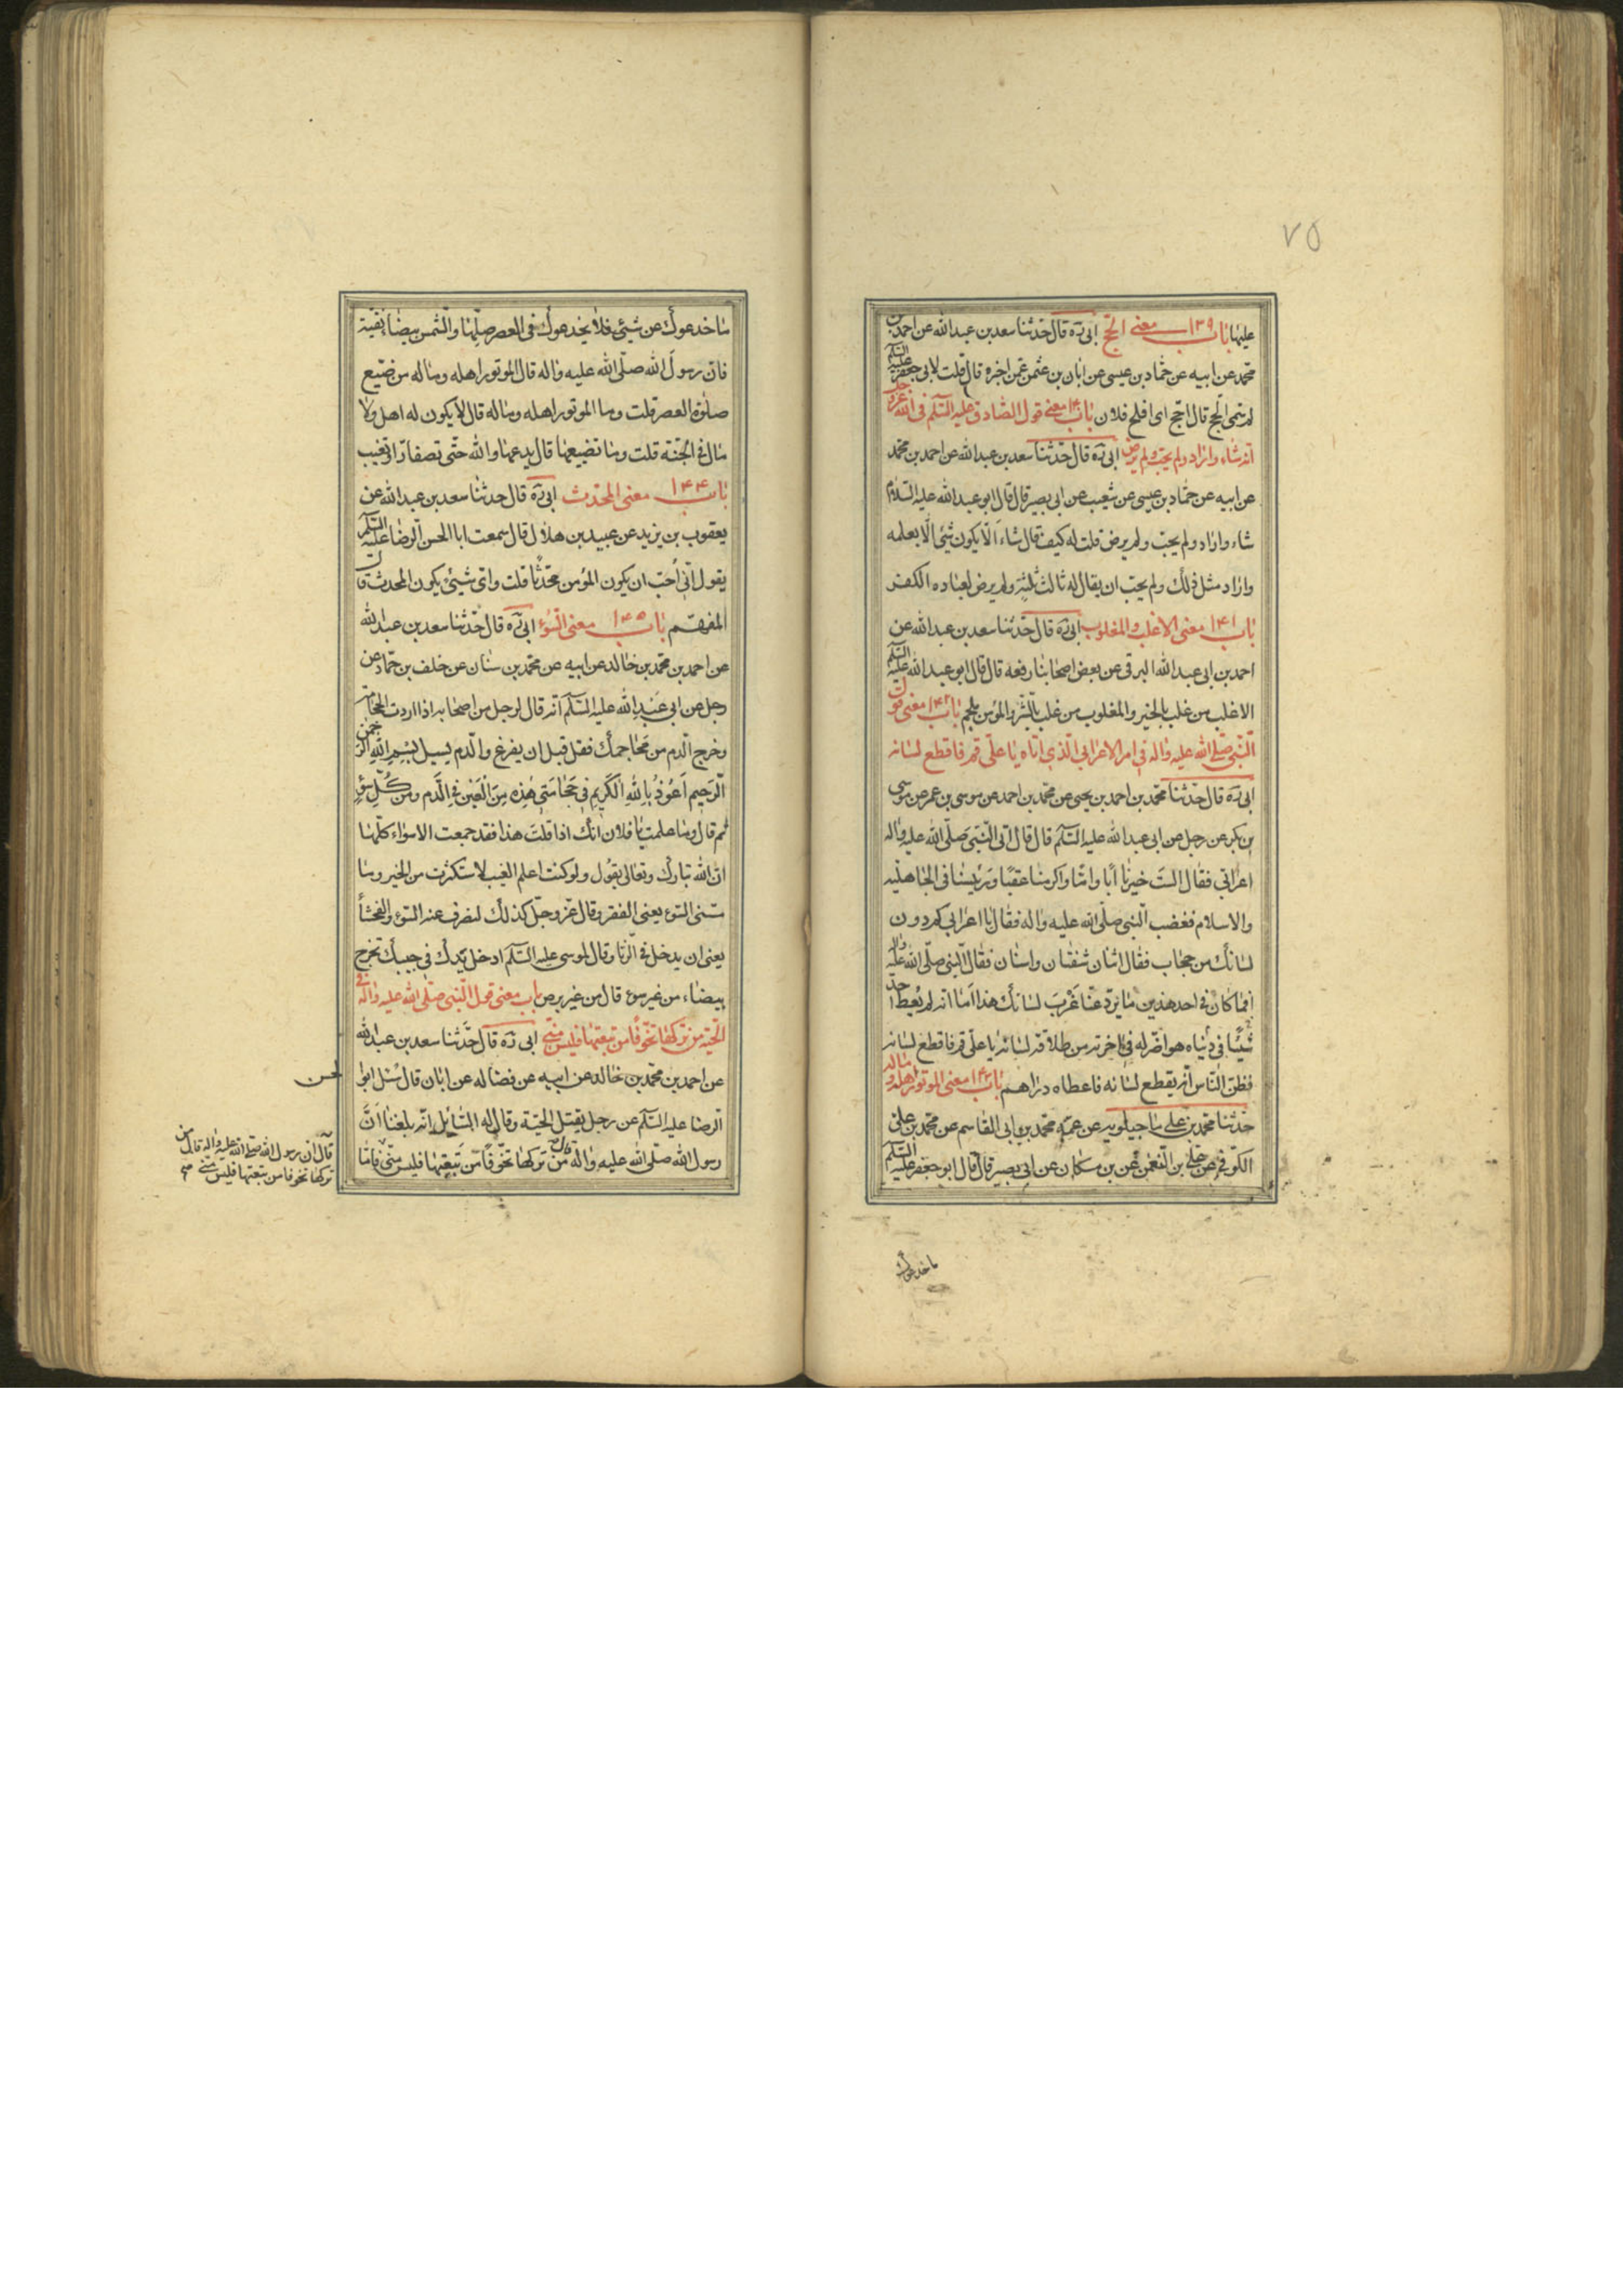 ٧٥
عليها باب ١٣٩ معنى الحج ابى ره قال حدثنا سعد بن عبد الله عن احمد بن
محمد عن ابيه عن حماد بن عيسى عن ابان بن عثمن عمن اخبره قال قلت لابى جعفر عليه السلم
لم سمى الحج قال الحج اى افلح فلان باب ١٤٠ معنى قول الصادق عليه السلم فى الله عز وجل
انه شاء واراد ولم يحب ولم يرض ابى ره قال حدثنا سعد بن عبد الله عن احمد بن محمد
عن ابيه عن حماد بن عيسى عن شعيب عن ابى بصير قال قال ابو عبد الله عليه السلام
شاء واراد ولم يحب ولم يرض قلت له كيف قال شاء الا يكون شئ الا بعلمه
واراد مثل ذلك ولم يحب ان يقال له ثالث ثلثة ولم يرض لعباده الكفر
باب ١٤١ معنى الاغلب والمغلوب ابى ره قال حدثنا سعد بن عبد الله عن
احمد بن ابى عبد الله البرقى عن بعض اصحابنا رفعه قال قال ابو عبد الله عليه السلم
الاغلب من غلب بالخير والمغلوب من غلب بالشر والمؤمن ملجم باب ١٤٢ معنى قول
النبى صلى الله عليه واله فى امر الاعرابى الذى اتاه يا على قم فاقطع لسانه
ابى ره قال حدثنا محمد بن احمد بن يحيى عن محمد بن احمد عن موسى بن عمر عن موسى
بن بكر عن رجل عن ابى عبد الله عليه السلم قال قال اتى النبى صلى الله عليه واله
اعرابى فقال الست خيرنا ابا واما واكرمنا عقبا ورئيسنا فى الجاهلية
والاسلام فغضب النبى صلى الله عليه واله فقال يا اعرابى كم دون
لسانك من حجاب فقال اثنان شفتان واسنان فقال النبى صلى الله عليه واله
افما كان فى احد هذين ما يرد عنا غرب لسانك هذا اما انه لم يعط احد
شيئا فى دنياه هو اضر له فى اخرته من طلاقة لسانه يا على قم فاقطع لسانه
فظن الناس انه يقطع لسانه فاعطاه دراهم باب ١٤٣ معنى الموتور اهله وماله
حدثنا محمد بن على ماجيلويه عن عمه محمد بن ابى القاسم عن محمد بن على
الكوفى عن على بن النعمن عن بن مسكان عن ابى بصير قال قال ابو جعفر عليه السلم
ما خدعوك
ما خدعوك عن شئ فلا يخدعوك فى العصر صلها والشمس بيضاء نقية
فان رسول الله صلى الله عليه واله قال الموتور اهله وماله من ضيع
صلوة العصر قلت وما الموتور اهله وماله قال لا يكون له اهل ولا
مال فى الجنة قلت وما تضييعها قال يدعها والله حتى تصفار او تغيب
باب ١٤٤ معنى المحدث ابى ره قال حدثنا سعد بن عبد الله عن
يعقوب بن يزيد عن عبيد بن هلال قال سمعت ابا الحسن الرضا عليه السلم
يقول انى احب ان يكون المؤمن محدثا قلت واى شئ يكون المحدث قال
المفهم باب ١٤٥ معنى السوء ابى ره قال حدثنا سعد بن عبد الله
عن احمد بن محمد بن خالد عن ابيه عن محمد بن سنان عن خلف بن حماد عن
رجل عن ابى عبد الله عليه السلم انه قال لرجل من اصحابه اذا اردت الحجامة
وخرج الدم من محاجمك فقل قبل ان يفرغ والدم يسيل بسم الله الرحمن
الرحيم اعوذ بالله الكريم فى حجامتى هذه من العين فى الدم ومن كل سوء
ثم قال وما علمت يا فلان انك اذا قلت هذا فقد جمعت الاسواء كلها
ان الله تبارك وتعالى يقول ولو كنت اعلم الغيب لاستكثرت من الخير وما
مسنى السوء يعنى الفقر وقال عز وجل كذلك لنصرف عنه السوء والفحشاء
يعنى ان يدخل فى الزنا وقال لموسى عليه السلم ادخل يدك فى جيبك تخرج
بيضاء من غير سوء قال من غير برص باب معنى قول النبى صلى الله عليه واله فى
الحية من تركها تخوفا من تبعتها فليس منى ابى ره قال حدثنا سعد بن عبد الله
عن احمد بن محمد بن خالد عن ابيه عن فضاله عن ابان قال سئل ابوا
الحسن
الرضا عليه السلم عن رجل يقتل الحية وقال له السائل انه بلغنا ان
رسول الله صلى الله عليه واله قال من تركها تخوفا من تبعتها فليس منى فاما
قال ان رسول الله صلى الله عليه واله قال من
تركها تخوفا من تبعتها فليس منى